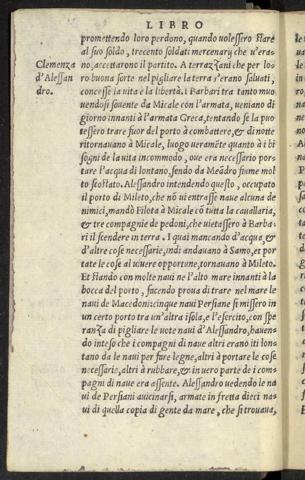 LIBRO
promettendo loro perdono, quando volessero stare
al suo soldo, trecento soldati mercenarij che v'era-
Clemenza
no, accettarono il partito. A terrazzani che per lo-
d'Alessan
ro buona sorte nel pigliare la terra s'erano saluati,
dro.
concesse la vita e la libertà. I Barbari tra tanto muo
uendosi souente da Micale con l'armata, ueniano di
giorno innanti à l'armata Greca, tentando se la puo
tessero trare fuor del porto à combattere, & di notte
ritornauano à Micale, luogo veramẽte quanto à i bi
sogni de la vita incommodo, oue era necessario por-
tare l'acqua di lontano, sendo da Meãdro fiume mol
to scostato. Alessandro intendendo questo, occupato
il porto di Mileto, che nõ ui entrasse naue alcuna de
nimici, mandò Filota à Micale cõ tutta la cauallaria,
& tre compagnie de pedoni, che uietassero à Barba-
ri il scendere in terra. I quai mancando d'acqua, &
d'altre cose necessarie, indi andauano à Samo, et por
tate le cose al uiuere opportune, tornauano à Mileto.
Et stando con molte naui ne l'alto mare innanti à la
bocca del porto, facendo proua di trare nel mare le
naui de Macedoni: cinque naui Persiane si missero in
un certo porto tra un'altra isola, e l'esercito, con spe
ranza di pigliare le uote naui d'Alessandro, hauen-
do inteso che i compagni di naue altri erano iti lon-
tano da le naui per fure legne, altri à portare le cose
necessarie, altri à rubbare, & in uero parte de i com-
pagni di naue era assente. Alessandro uedendo le na
ui de Persiani auicinarsi, armate in fretta dieci na-
ui di quella copia di gente da mare, che si trouaua,